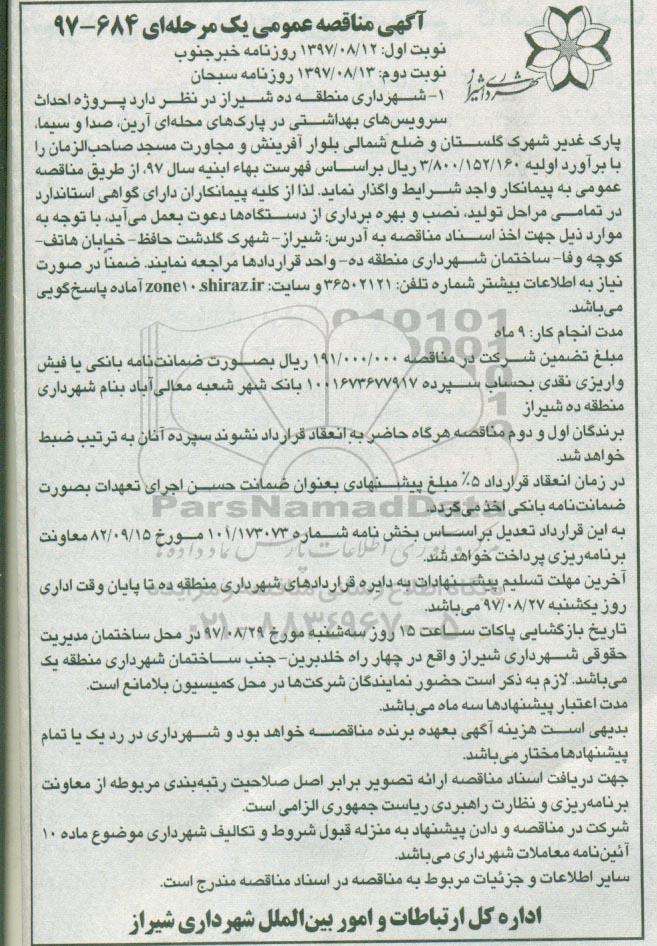 آگهی مناقصه عمومی یک مرحله‌ای ۶۸۴-۹۷
نوبت اول: ۱۳۹۷/۰۸/۱۲ روزنامه خبرجنوب
نوبت دوم: ۱۳۹۷/۰۸/۱۳ روزنامه سبحان
شهرداری شیراز
۱- شهرداری منطقه ده شیراز در نظر دارد پروژه احداث
سرویس‌های بهداشتی در پارک‌های محله‌ای آرین، صدا و سیما،
پارک غدیر شهرک گلستان و ضلع شمالی بلوار آفرینش و مجاورت مسجد صاحب‌الزمان را
با برآورد اولیه ۳/۸۰۰/۱۵۲/۱۶۰ ریال براساس فهرست بهاء ابنیه سال ۹۷، از طریق مناقصه
عمومی به پیمانکار واجد شرایط واگذار نماید. لذا از کلیه پیمانکاران دارای گواهی استاندارد
در تمامی مراحل تولید، نصب و بهره برداری از دستگاه‌ها دعوت بعمل می‌آید، با توجه به
موارد ذیل جهت اخذ اسناد مناقصه به آدرس: شیراز- شهرک گلدشت حافظ- خیابان هاتف-
کوچه وفا- ساختمان شهرداری منطقه ده- واحد قراردادها مراجعه نمایند. ضمناً در صورت
نیاز به اطلاعات بیشتر شماره تلفن: ۳۶۵۰۲۱۲۱ و سایت: zone۱۰.shiraz.ir آماده پاسخ‌گویی
می‌باشد.
مدت انجام کار: ۹ ماه
مبلغ تضمین شرکت در مناقصه ۱۹۱/۰۰۰/۰۰۰ ریال بصورت ضمانت‌نامه بانکی یا فیش
واریزی نقدی بحساب سپرده ۱۰۰۱۶۷۳۶۷۷۹۱۷ بانک شهر شعبه معالی‌آباد بنام شهرداری
منطقه ده شیراز
برندگان اول و دوم مناقصه هرگاه حاضر به انعقاد قرارداد نشوند سپرده آنان به ترتیب ضبط
خواهد شد.
در زمان انعقاد قرارداد ۵٪ مبلغ پیشنهادی بعنوان ضمانت حسن اجرای تعهدات بصورت
ضمانت‌نامه بانکی اخذ می‌گردد.
به این قرارداد تعدیل براساس بخش نامه شماره ۱۰۱/۱۷۳۰۷۳ مورخ ۸۲/۰۹/۱۵ معاونت
برنامه‌ریزی پرداخت خواهد شد.
آخرین مهلت تسلیم پیشنهادات به دایره قراردادهای شهرداری منطقه ده تا پایان وقت اداری
روز یکشنبه ۹۷/۰۸/۲۷ می‌باشد.
تاریخ بازگشایی پاکات ساعت ۱۵ روز سه‌شنبه مورخ ۹۷/۰۸/۲۹ در محل ساختمان مدیریت
حقوقی شهرداری شیراز واقع در چهار راه خلدبرین- جنب ساختمان شهرداری منطقه یک
می‌باشد. لازم به ذکر است حضور نمایندگان شرکت‌ها در محل کمیسیون بلامانع است.
مدت اعتبار پیشنهادها سه ماه می‌باشد.
بدیهی است هزینه آگهی بعهده برنده مناقصه خواهد بود و شهرداری در رد یک یا تمام
پیشنهادها مختار می‌باشد.
جهت دریافت اسناد مناقصه ارائه تصویر برابر اصل صلاحیت رتبه‌بندی مربوطه از معاونت
برنامه‌ریزی و نظارت راهبردی ریاست جمهوری الزامی است.
شرکت در مناقصه و دادن پیشنهاد به منزله قبول شروط و تکالیف شهرداری موضوع ماده ۱۰
آئین‌نامه معاملات شهرداری می‌باشد.
سایر اطلاعات و جزئیات مربوط به مناقصه در اسناد مناقصه مندرج است.
اداره کل ارتباطات و امور بین‌الملل شهرداری شیراز
ParsNamadData
۰۲۱-۸۸۳۴۹۶۷۰-۵